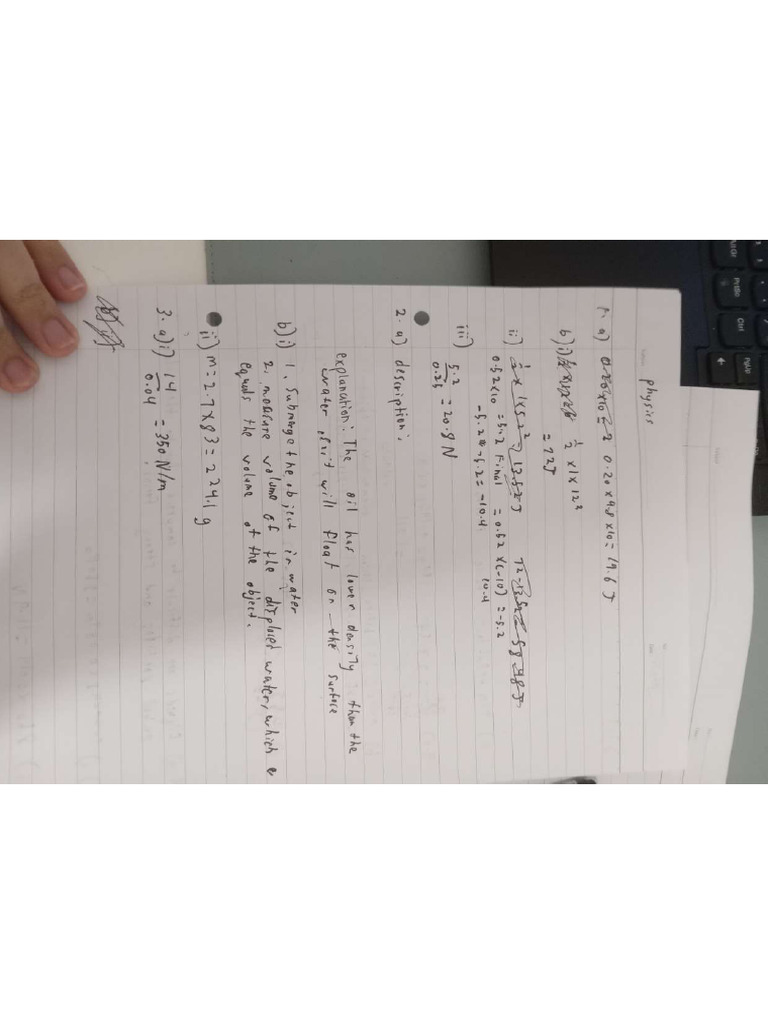 physics
1. a) 0.20 x 9.8 x 10 = 19.6 J
b) i) 1/2 x 1 x 12² = 72 J
ii) 1/2 x 1 x 5.2²
0.52 x 10 = 5.2 Final = 0.52 x (-10) = -5.2
-5.2 - 5.2 = -10.4 10.4
iii) 5.2/0.25 = 20.8 N
2. a) description:
explanation: The oil has lower density than the
water, it will float on the surface
b) i) 1. Submerge the object in water
2. measure volume of the displaced water, which
equals the volume of the object.
ii) m = 2.7 x 83 = 224.1 g
3. a) i) 14/0.04 = 350 N/m
PrtSc
Ctrl